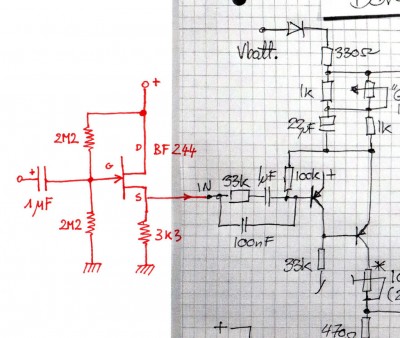 Vbatt.
330Ω
+
1k
2M2
D
BF244
22µF
1k
G
+
1µF
S
IN
33k
1µF
100k
+
2M2
3K3
100nF
33k
*
470Ω
+